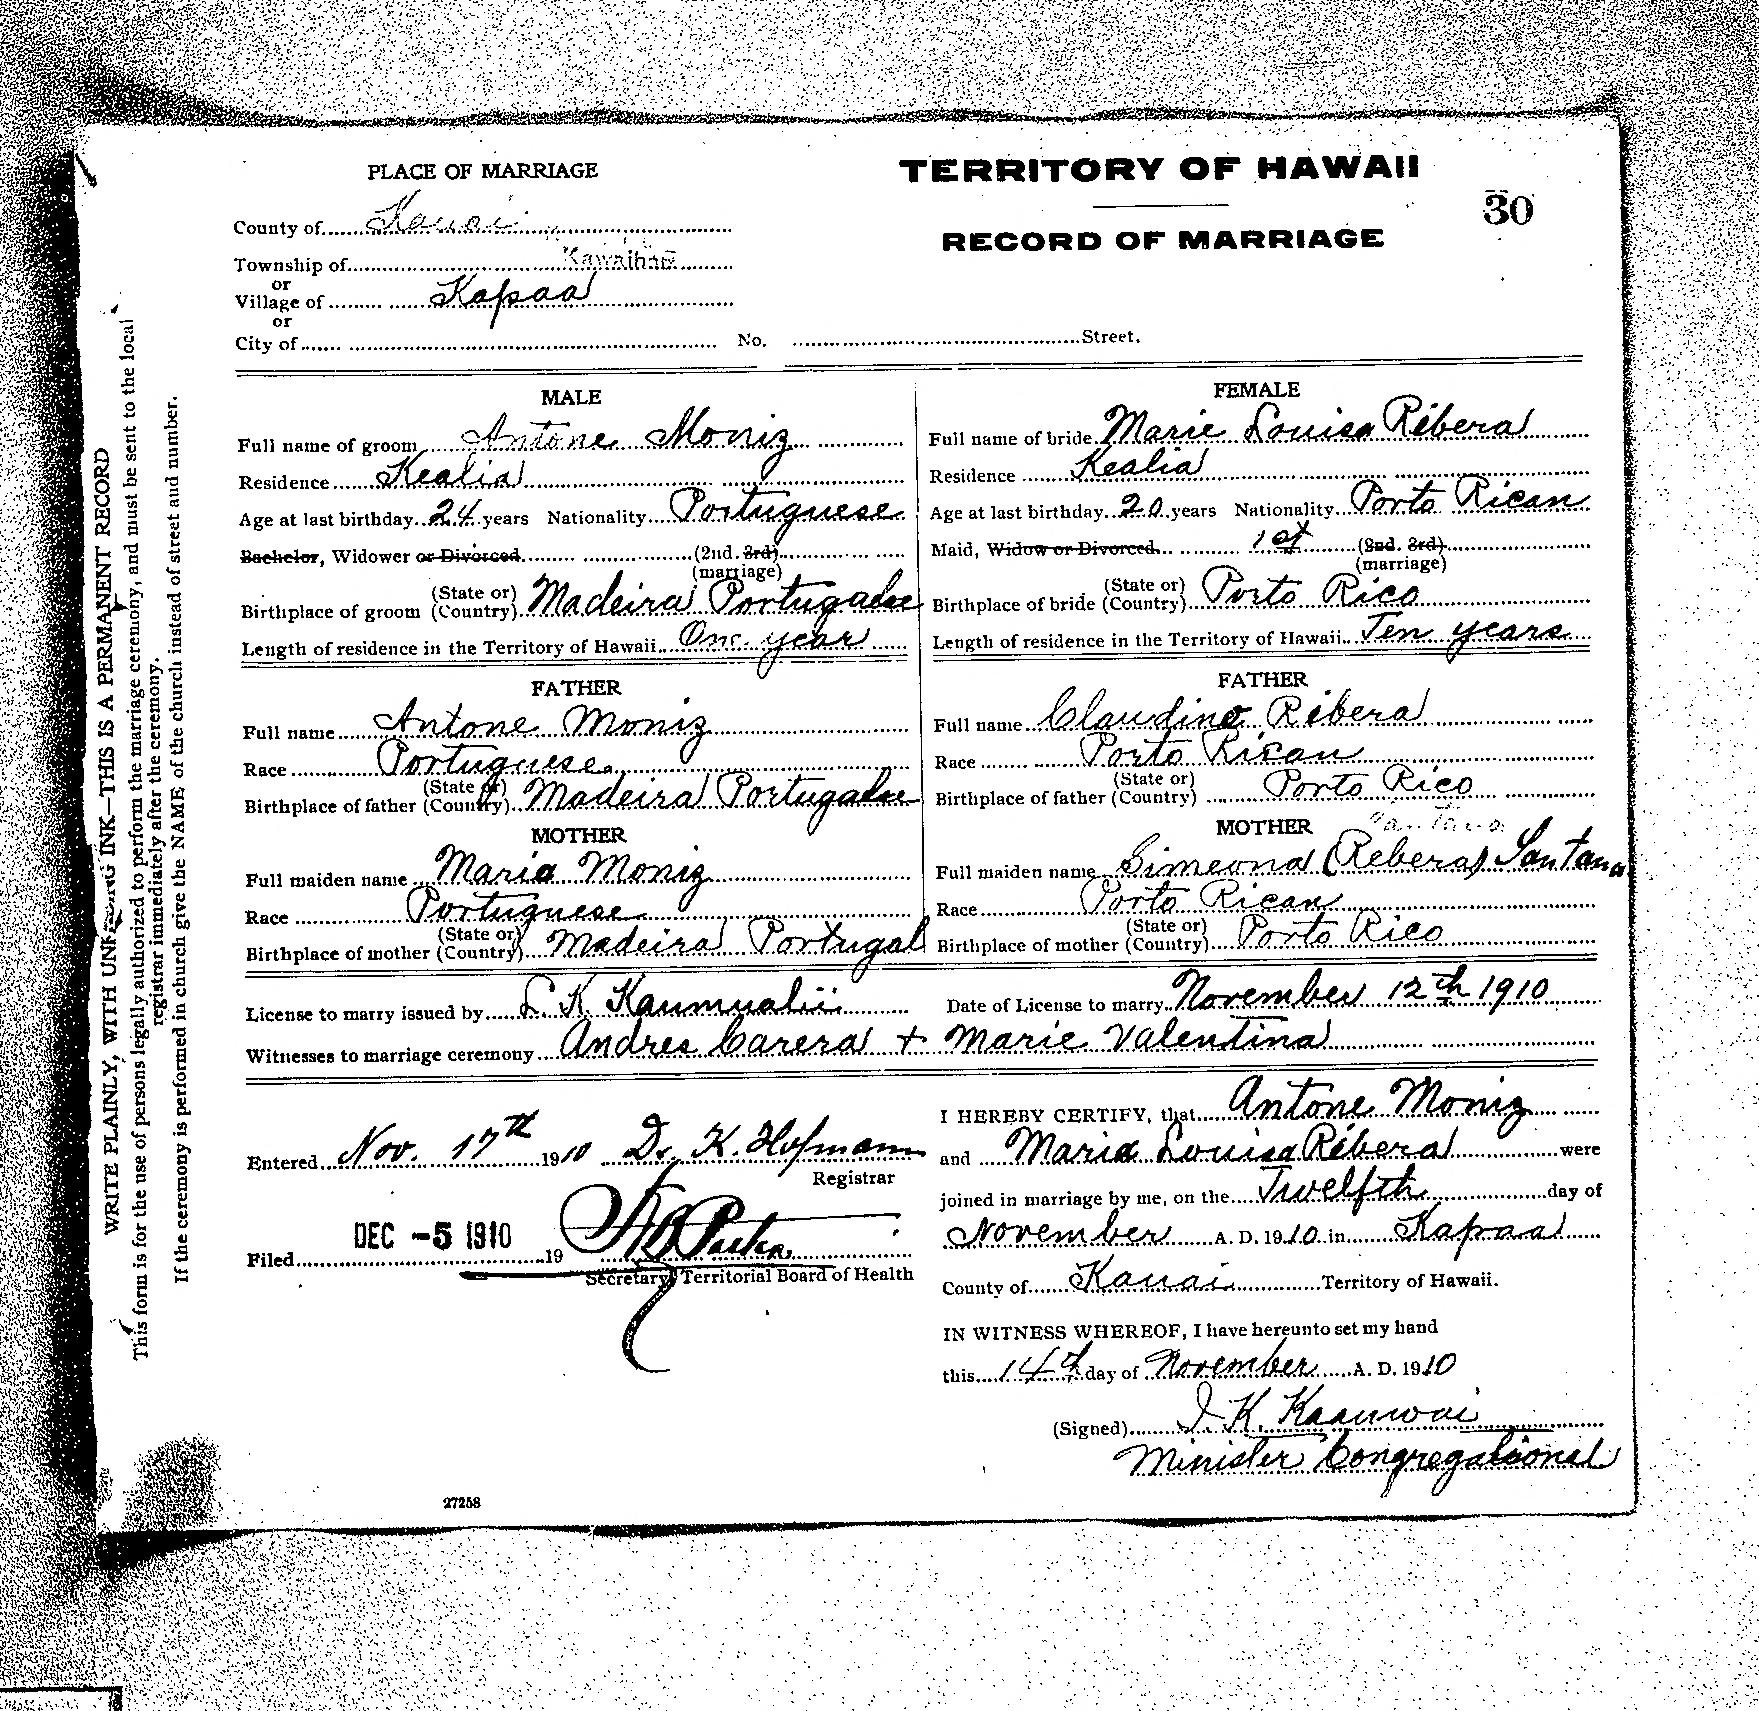 PLACE OF MARRIAGE
TERRITORY OF HAWAII
30
RECORD OF MARRIAGE
County of Kauai
Township of Kawaihau
or
Village of Kapaa
or
City of No. Street.
MALE
Full name of groom Antone Moniz
Residence Kealia
Age at last birthday 24 years Nationality Portuguese
Bachelor, Widower or Divorced (2nd. 3rd)
(marriage)
Birthplace of groom (State or Country) Madeira Portugalse
Length of residence in the Territory of Hawaii One year
FATHER
Full name Antone Moniz
Race Portuguese
Birthplace of father (State or Country) Madeira Portugalse
MOTHER
Full maiden name Maria Moniz
Race Portuguese
Birthplace of mother (State or Country) Madeira Portugal
FEMALE
Full name of bride Marie Louisa Ribera
Residence Kealia
Age at last birthday 20 years Nationality Porto Rican
Maid, Widow or Divorced 1st (2nd. 3rd)
(marriage)
Birthplace of bride (State or Country) Porto Rico
Length of residence in the Territory of Hawaii Ten years
FATHER
Full name Claudino Ribera
Race Porto Rican
Birthplace of father (State or Country) Porto Rico
MOTHER Santana
Full maiden name Simeona (Rebera) Santana
Race Porto Rican
Birthplace of mother (State or Country) Porto Rico
License to marry issued by S. K. Kaumualii Date of License to marry November 12th 1910
Witnesses to marriage ceremony Andres Carera + Marie Valentina
Entered Nov. 17th 1910 Dr. K. Hofmann
Registrar
Filed DEC -5 1910 19
Secretary Territorial Board of Health
I HEREBY CERTIFY, that Antone Moniz
and Maria Louisa Ribera were
joined in marriage by me, on the Twelfth day of
November A. D. 1910 in Kapaa
County of Kauai Territory of Hawaii.
IN WITNESS WHEREOF, I have hereunto set my hand
this 14th day of November A. D. 1910
(Signed) J. K. Kaauwai
Minister Congregational
27258
WRITE PLAINLY, WITH UNFADING INK—THIS IS A PERMANENT RECORD
This form is for the use of persons legally authorized to perform the marriage ceremony, and must be sent to the local
registrar immediately after the ceremony.
If the ceremony is performed in church give the NAME of the church instead of street and number.